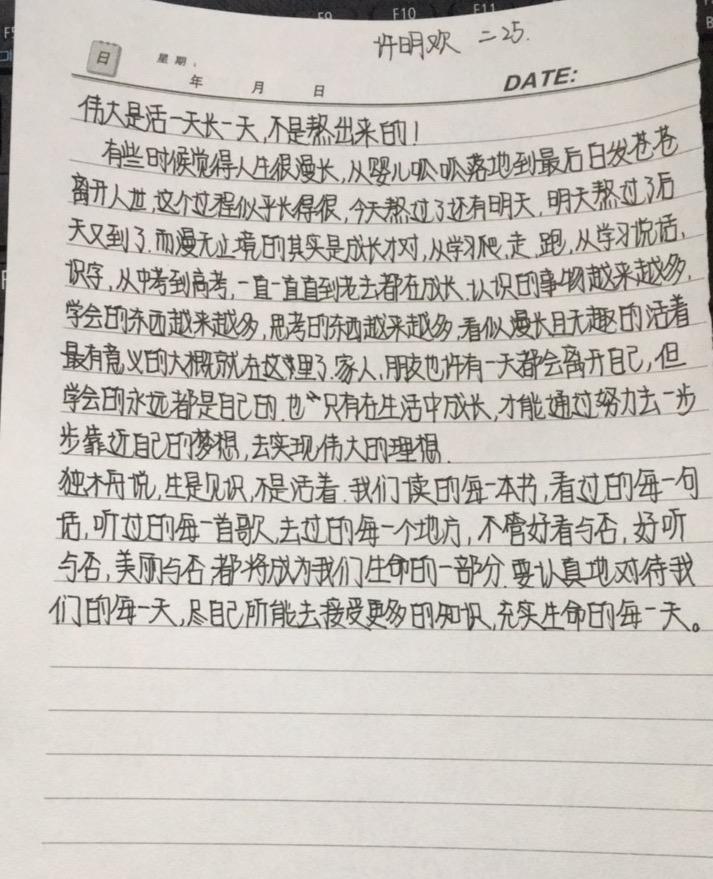 F9 F10 F11
许明欢 二25.
日 星期：
年 月 日 DATE:
伟大是活一天长一天,不是熬出来的!
有些时候觉得人生很漫长,从婴儿呱呱落地到最后白发苍苍
离开人世,这个过程似乎长得很,今天熬过了还有明天,明天熬过了后
天又到了.而漫无止境的其实是成长才对,从学习爬,走,跑,从学习说话、
识字,从中考到高考,一直一直直到老去都在成长.认识的事物越来越多,
学会的东西越来越多,思考的东西越来越多,看似漫长且无趣的活着
最有意义的大概就在这里了.家人,朋友也许有一天都会离开自己,但
学会的永远都是自己的.也只有在生活中成长,才能通过努力去一步
步靠近自己的梦想,去实现伟大的理想.
独木舟说,生是见识,不是活着.我们读的每一本书,看过的每一句
话,听过的每一首歌,去过的每一个地方,不管好看与否,好听
与否,美丽与否,都将成为我们生命的一部分.要认真地对待我
们的每一天,尽自己所能去接受更多的知识,充实生命的每一天。